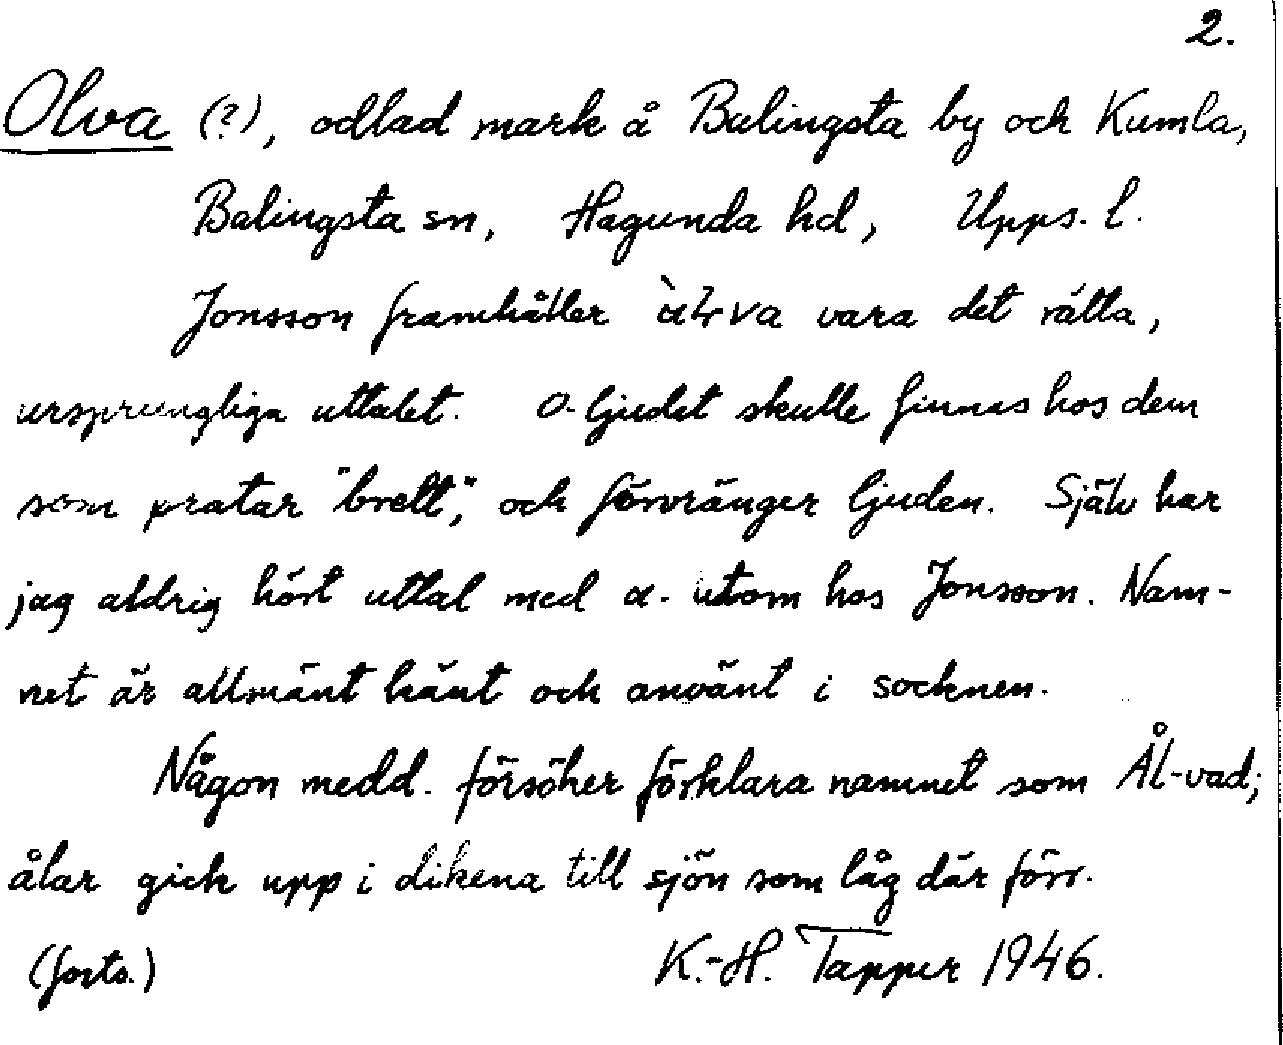 2.
Olva (?), odlad mark å Balingsta by och Kumla,
Balingsta sn, Hagunda hd, Upps. l.
Jonsson framhåller vara det rätta,
ursprungliga uttalet. O-ljudet skulle finnas hos dem
som pratar "brett", och förvränger ljuden. Själv har
jag aldrig hört uttal med α- utom hos Jonsson. Nam-
net är allmänt känt och använt i socknen.
Någon medd. försöker förklara namnet som Ål-vad;
ålar gick upp i dikena till sjön som låg där förr.
(forts.) K.-H. Tapper 1946.